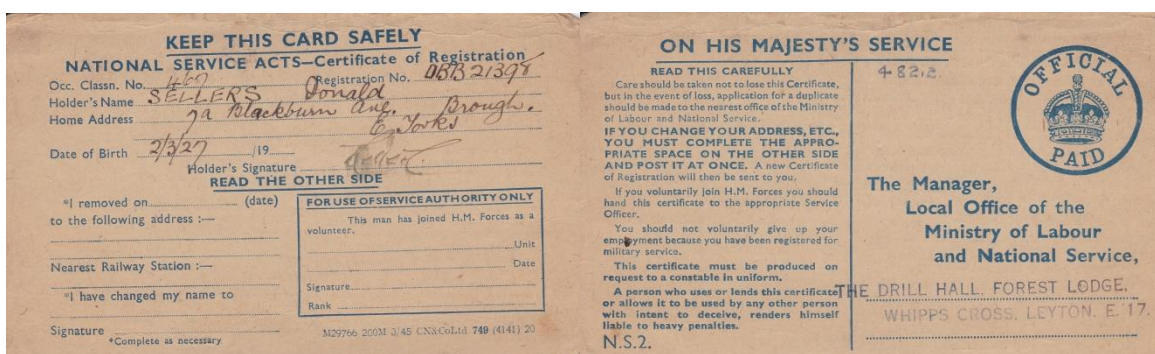 KEEP THIS CARD SAFELY
NATIONAL SERVICE ACTS—Certificate of Registration
Occ. Classn. No. 467 Registration No. OBB 21398
Holder's Name SELLERS Donald
Home Address 7a Blackburn Ave. Brough.
E. Yorks
Date of Birth 2/3/27 /19
Holder's Signature
READ THE OTHER SIDE
*I removed on (date)
to the following address :—
Nearest Railway Station :—
*I have changed my name to
Signature
*Complete as necessary
FOR USE OF SERVICE AUTHORITY ONLY
This man has joined H.M. Forces as a
volunteer.
Unit
Date
Signature
Rank
M29766 200M 3/45 CN&CoLtd 749 (4141) 20
ON HIS MAJESTY'S SERVICE
READ THIS CAREFULLY
Care should be taken not to lose this Certificate,
but in the event of loss, application for a duplicate
should be made to the nearest office of the Ministry
of Labour and National Service.
IF YOU CHANGE YOUR ADDRESS, ETC.,
YOU MUST COMPLETE THE APPRO-
PRIATE SPACE ON THE OTHER SIDE
AND POST IT AT ONCE. A new Certificate
of Registration will then be sent to you.
If you voluntarily join H.M. Forces you should
hand this certificate to the appropriate Service
Officer.
You should not voluntarily give up your
employment because you have been registered for
military service.
This certificate must be produced on
request to a constable in uniform.
A person who uses or lends this certificate
or allows it to be used by any other person
with intent to deceive, renders himself
liable to heavy penalties.
N.S.2.
482.2.
OFFICIAL
PAID
The Manager,
Local Office of the
Ministry of Labour
and National Service,
THE DRILL HALL, FOREST LODGE,
WHIPPS CROSS, LEYTON. E.17.